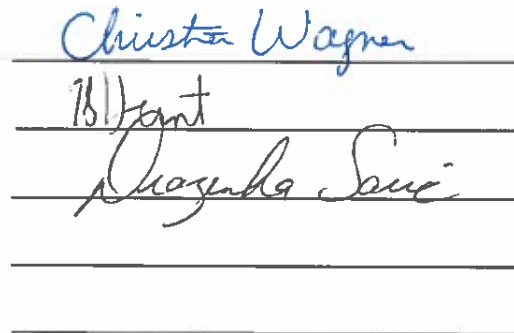 Christer Wagner
Drazenka Savic